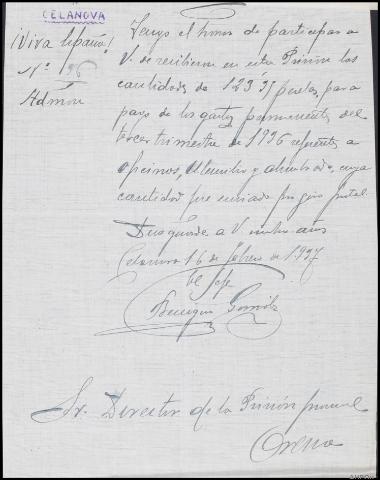 CELANOVA
¡Viva España!
Nº 96
Admon
Tengo el honor de participar a
V. se recibieron en esta Prisión las
cantidades de 123'35 pesetas, para
pago de los gastos permanentes del
tercer trimestre de 1936 referentes a
oficinas, utensilio y alumbrado, cuya
cantidad fue enviada por giro postal.
Dios guarde a V. muchos años
Celanova 16 de febrero de 1937
el Jefe
Sr. Director de la Prisión provincial
Orense